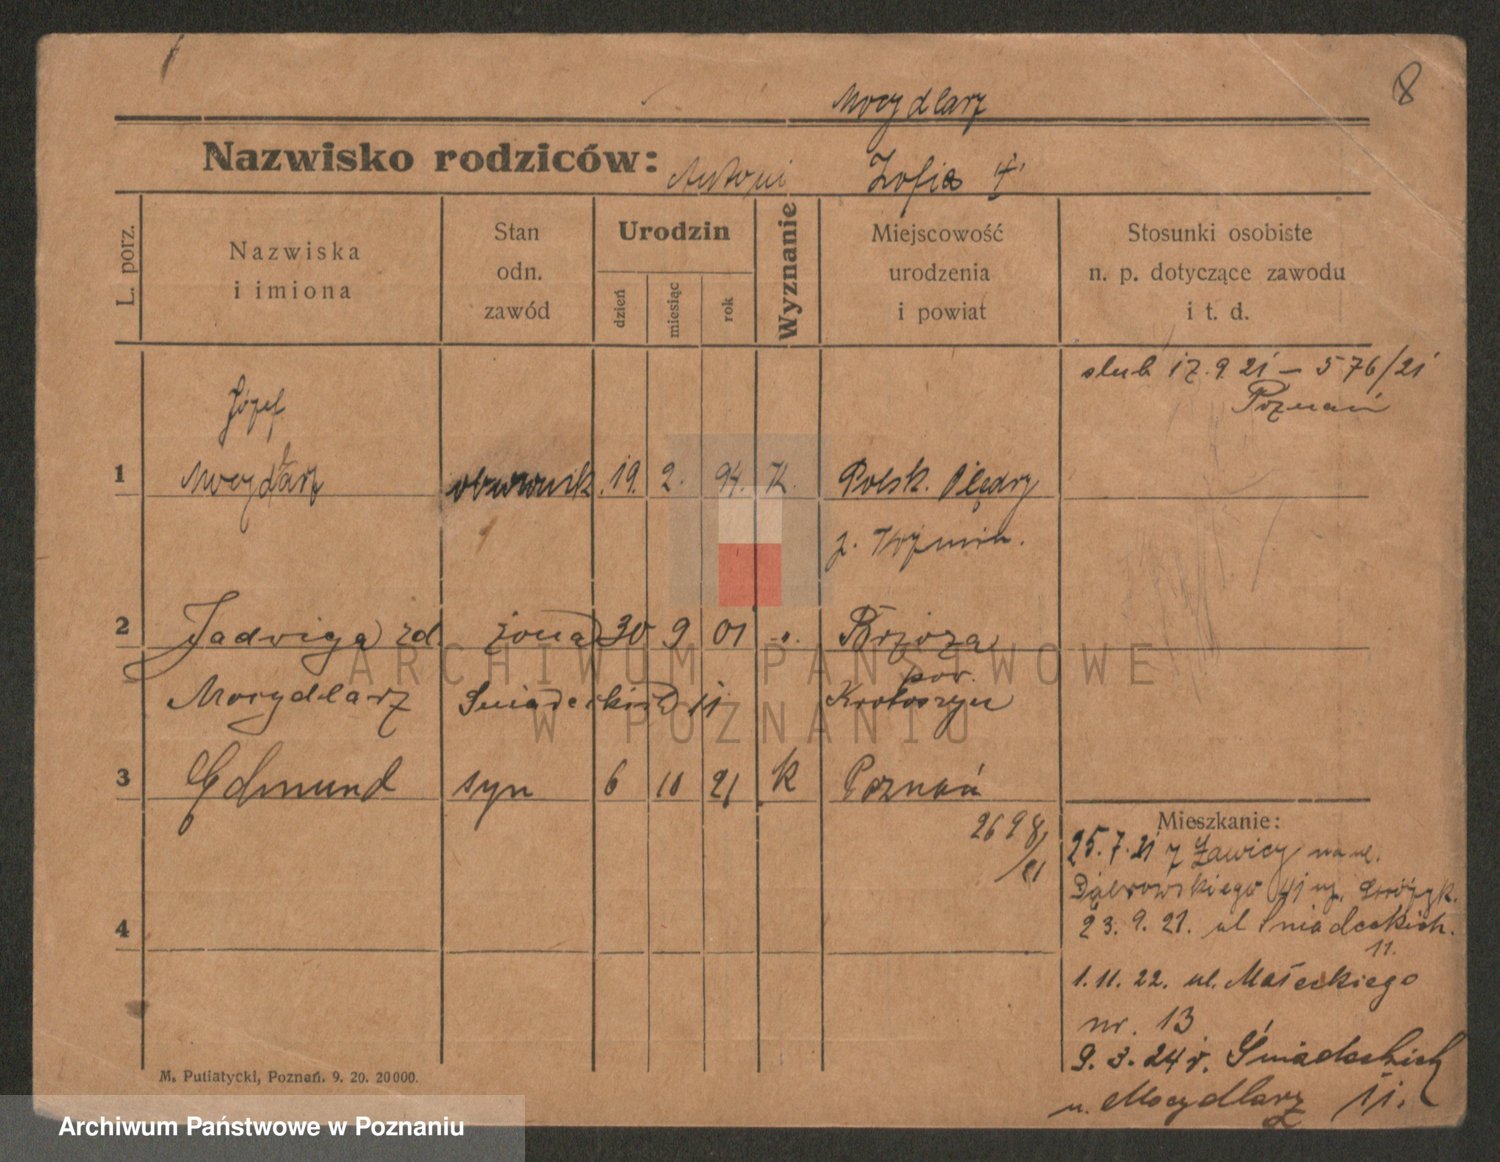 8
Mocydlarz
Nazwisko rodziców: Antoni Zofia
L. porz.
Nazwiska
i imiona
Stan
odn.
zawód
Urodzin
dzień
miesiąc
rok
Wyznanie
Miejscowość
urodzenia
i powiat
Stosunki osobiste
n. p. dotyczące zawodu
i t. d.
slub 17.9 21 – 576/21
Poznań
Józef
1 Mocydlarz 19. 2. 94. K. Polsk. Olędry
2 Jadwiga zd. żona 30 9 01 Brzoza
pow.
Mocydlarz Sniadeckich 11 Krotoszyn
3 Edmund syn 6 10 21 k Poznań
2698
/21
Mieszkanie:
25.7.21 z Ławicy na ul.
Dąbrowskiego 41
4
23. 9. 21. ul Sniadeckich.
11.
1. 11. 22. ul. Małeckiego
nr. 13
9. 3. 24 r. Śniadeckich
u. Mocydlarz 11.
M. Putiatycki, Poznań. 9. 20. 20000.
ARCHIWUM PAŃSTWOWE
W POZNANIU
Archiwum Państwowe w Poznaniu